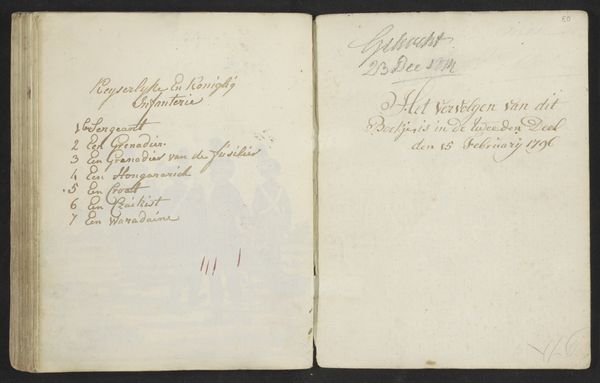 Keyserlyke En Koniglig
Infanterie
1 Sergeant
2 Een Grenadier.
3 Een Grenadier van de fusilier
4 Een Hongararich
5 Een Croatt
6 Een
7 Een Waradaine
80
Gekocht
23 Dec
Het vervolgen van dit
Boekje is in de tweeden Deel
den 15 Februarij 1796